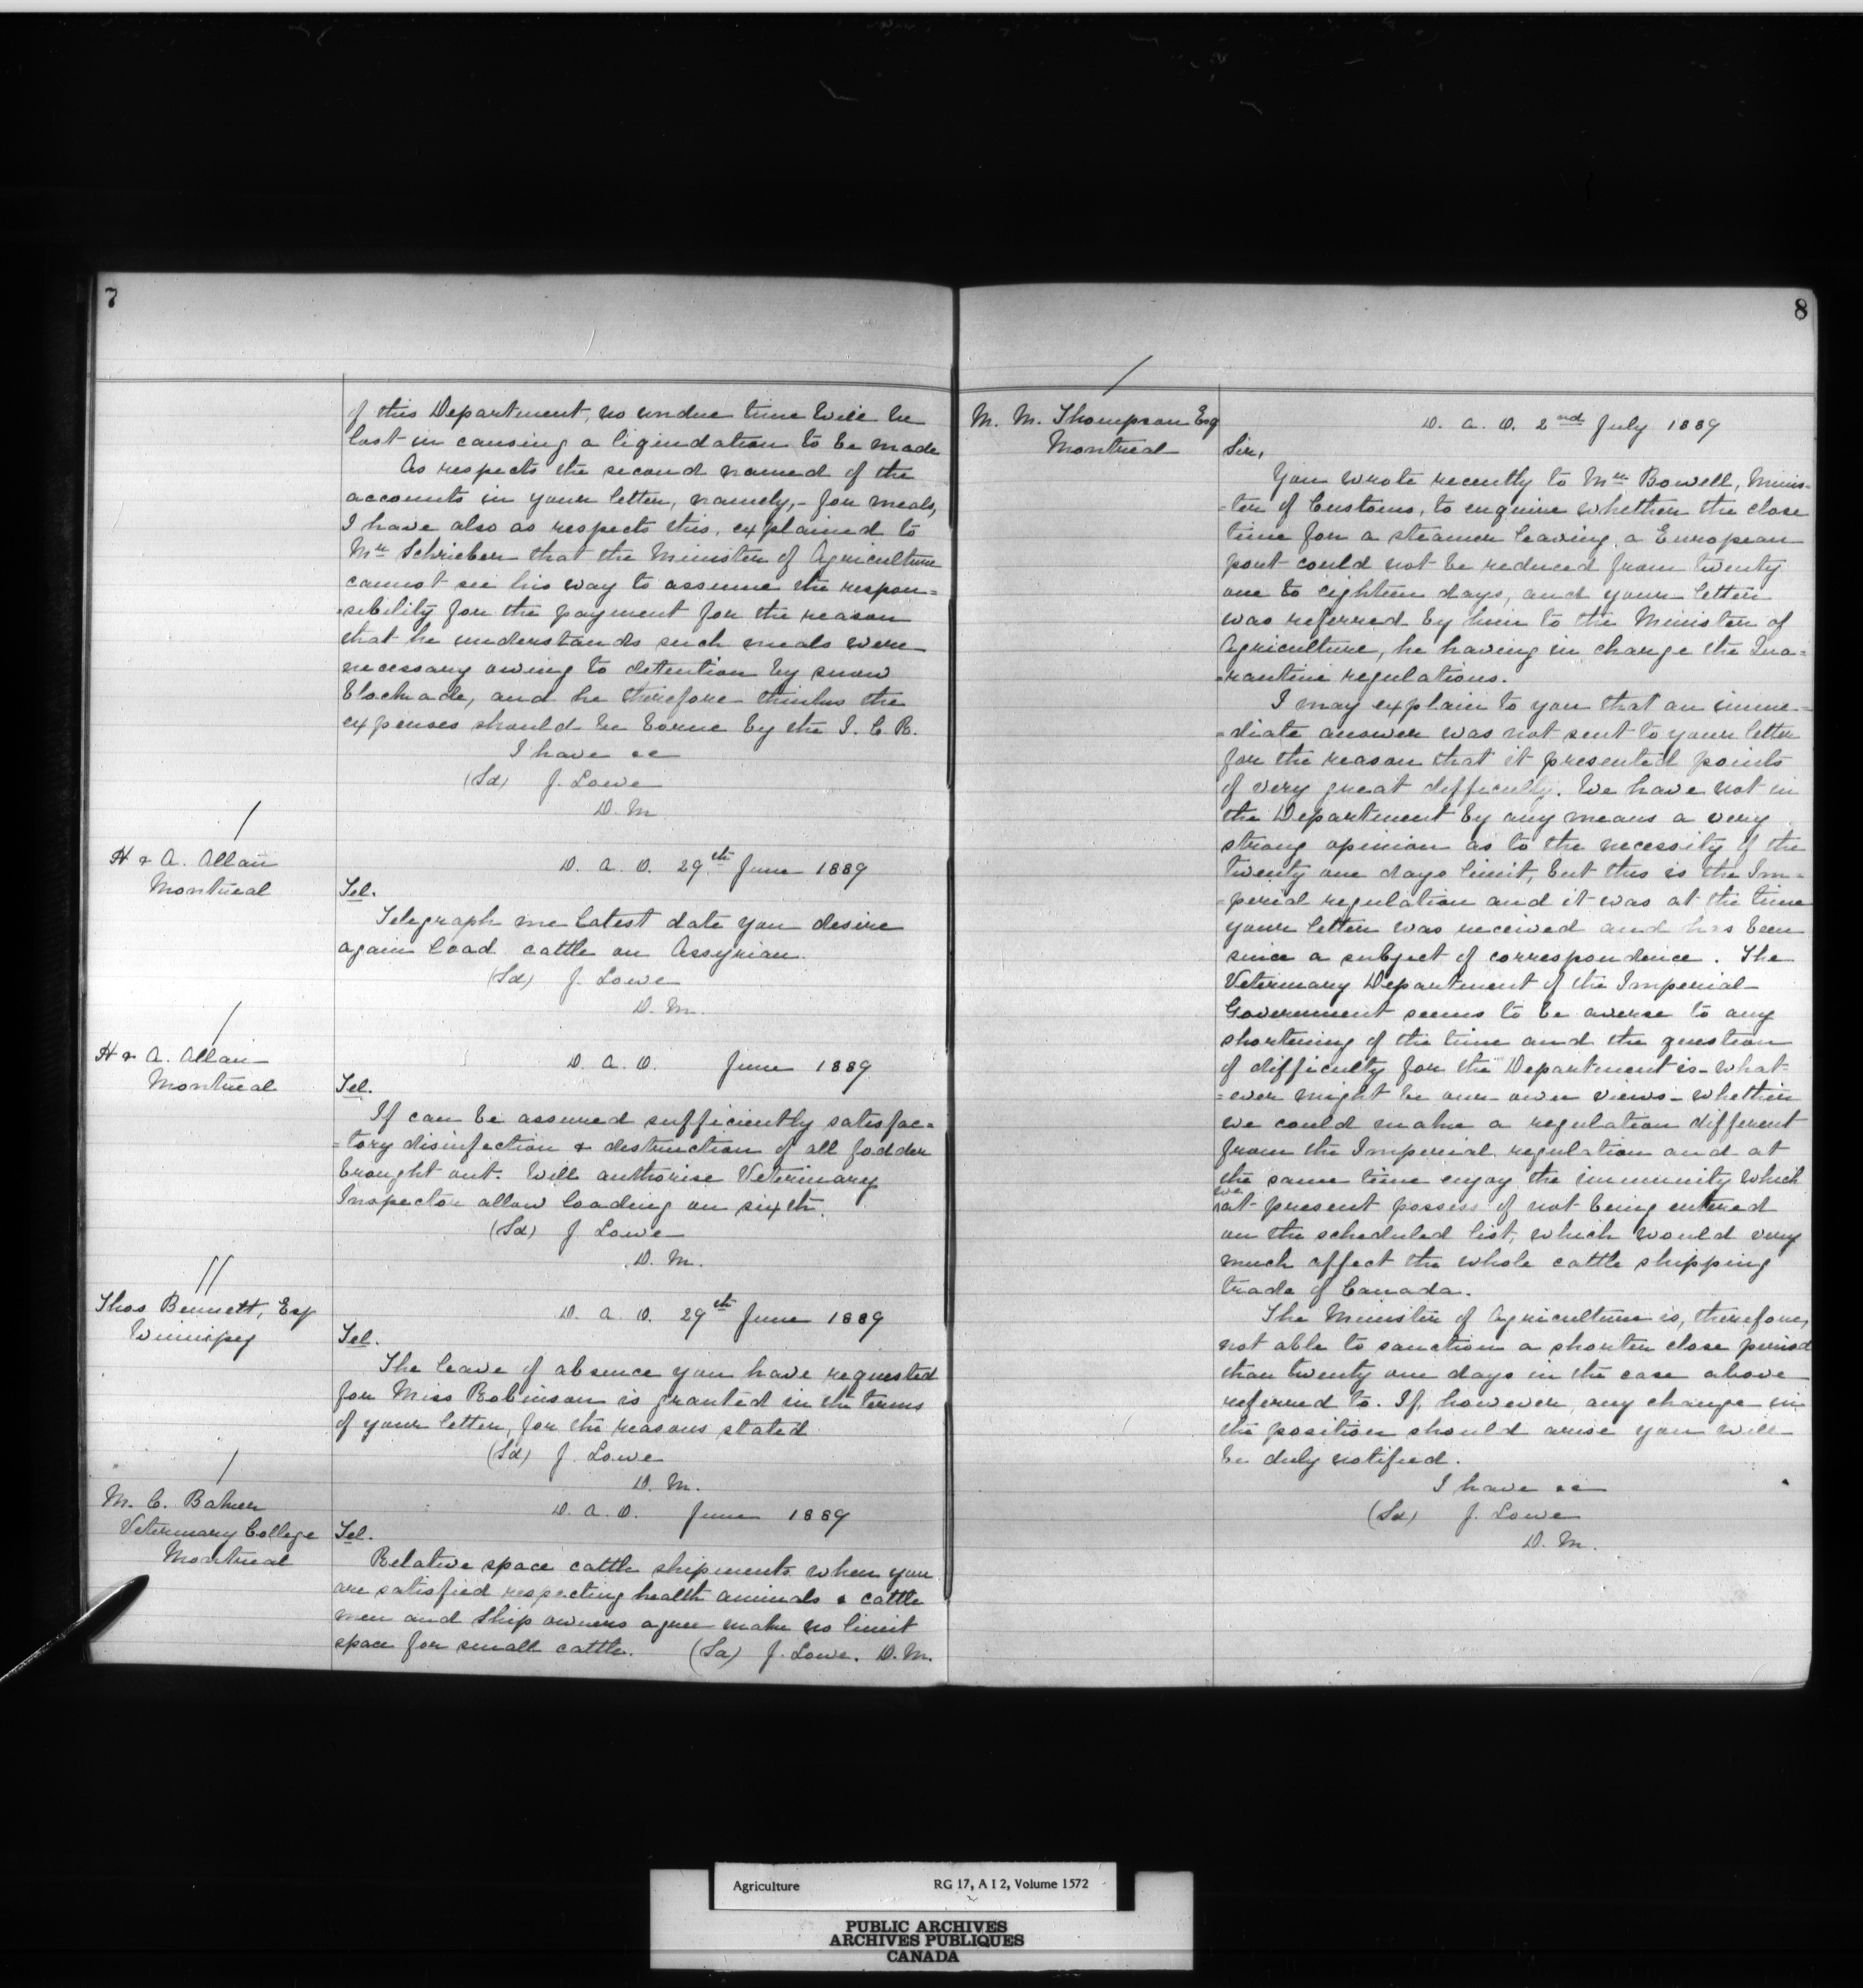 7
of this Department, no undue time will be
lost in causing a liquidation to be made
As respects the second named of the
accounts in your letter, namely,- for meals,
I have also as respects this, explained to
Mr Schrieber that the Minister of Agriculture
cannot see his way to assume the respon=
=sibility for the payment for the reason
that he understands such meals were
necessary owing to detention by snow
blockade, and he therefore thinks the
expenses should be borne by the I. C. R.
I have &c
(Sd) J. Lowe
D. M.
H & A. Allan
Montreal
D. A. O. 29th June 1889
Tel.
Telegraph me latest date you desire
again load cattle on Assyrian.
(Sd) J. Lowe
D. M.
H & A. Allan
Montreal
D. A. O. June 1889
Tel.
If can be assured sufficiently satisfac=
=tory disinfection & destruction of all fodder
brought out. Will authorise Veterinary
Inspector allow loading on sixth.
(Sd) J Lowe
D. M.
Thos Bennett, Esq
Winnipeg
D. A. O. 29th June 1889
Tel.
The leave of absence you have requested
for Miss Robinson is granted in the terms
of your letter, for the reasons stated
(Sd) J. Lowe
D. M.
M. C. Baker
Veterinary College
Montreal
D. A. O. June 1889
Tel.
Relative space cattle shipments when you
are satisfied respecting health animals & cattle
men and ship owners agree make no limit
space for small cattle. (Sd) J. Lowe. D. M.
8
M. M. Thompson Esq
Montreal
D. A. O. 2nd July 1889
Sir,
You wrote recently to Mr Bowell, Minis=
=ter of Customs, to enquire whether the close
time for a steamer leaving a European
port could not be reduced from twenty
one to eighteen days, and your letter
was referred by him to the Minister of
Agriculture, he having in charge the Qua=
=rantine regulations.
I may explain to you that an imme=
=diate answer was not sent to your letter
for the reason that it presented points
of very great difficulty. We have not in
the Department by any means a very
strong opinion as to the necessity of the
twenty one days limit, but this is the Im=
=perial regulation and it was at the time
your letter was received and has been
since a subject of correspondence. The
Veterinary Department of the Imperial
Government seems to be averse to any
shortening of the time and the question
of difficulty for the Department is - what=
=ever might be our own views - whether
we could make a regulation different
from the Imperial regulation and at
the same time enjoy the immunity which
we
at present possess of not being entered
on the scheduled list, which would very
much affect the whole cattle shipping
trade of Canada.
The Minister of Agriculture is, therefore,
not able to sanction a shorter close period
than twenty one days in the case above
referred to. If, however, any change in
the position should arise you will
be duly notified.
I have &c
(Sd) J. Lowe
D. M.
Agriculture RG 17, A I 2, Volume 1572
PUBLIC ARCHIVES
ARCHIVES PUBLIQUES
CANADA